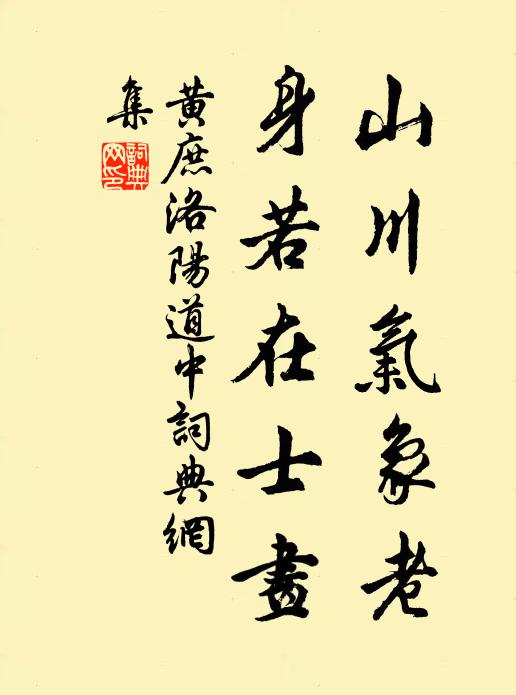 山川氣象老
身若在士畫
黄庶洛陽道中詞典網
集
詞典
网印